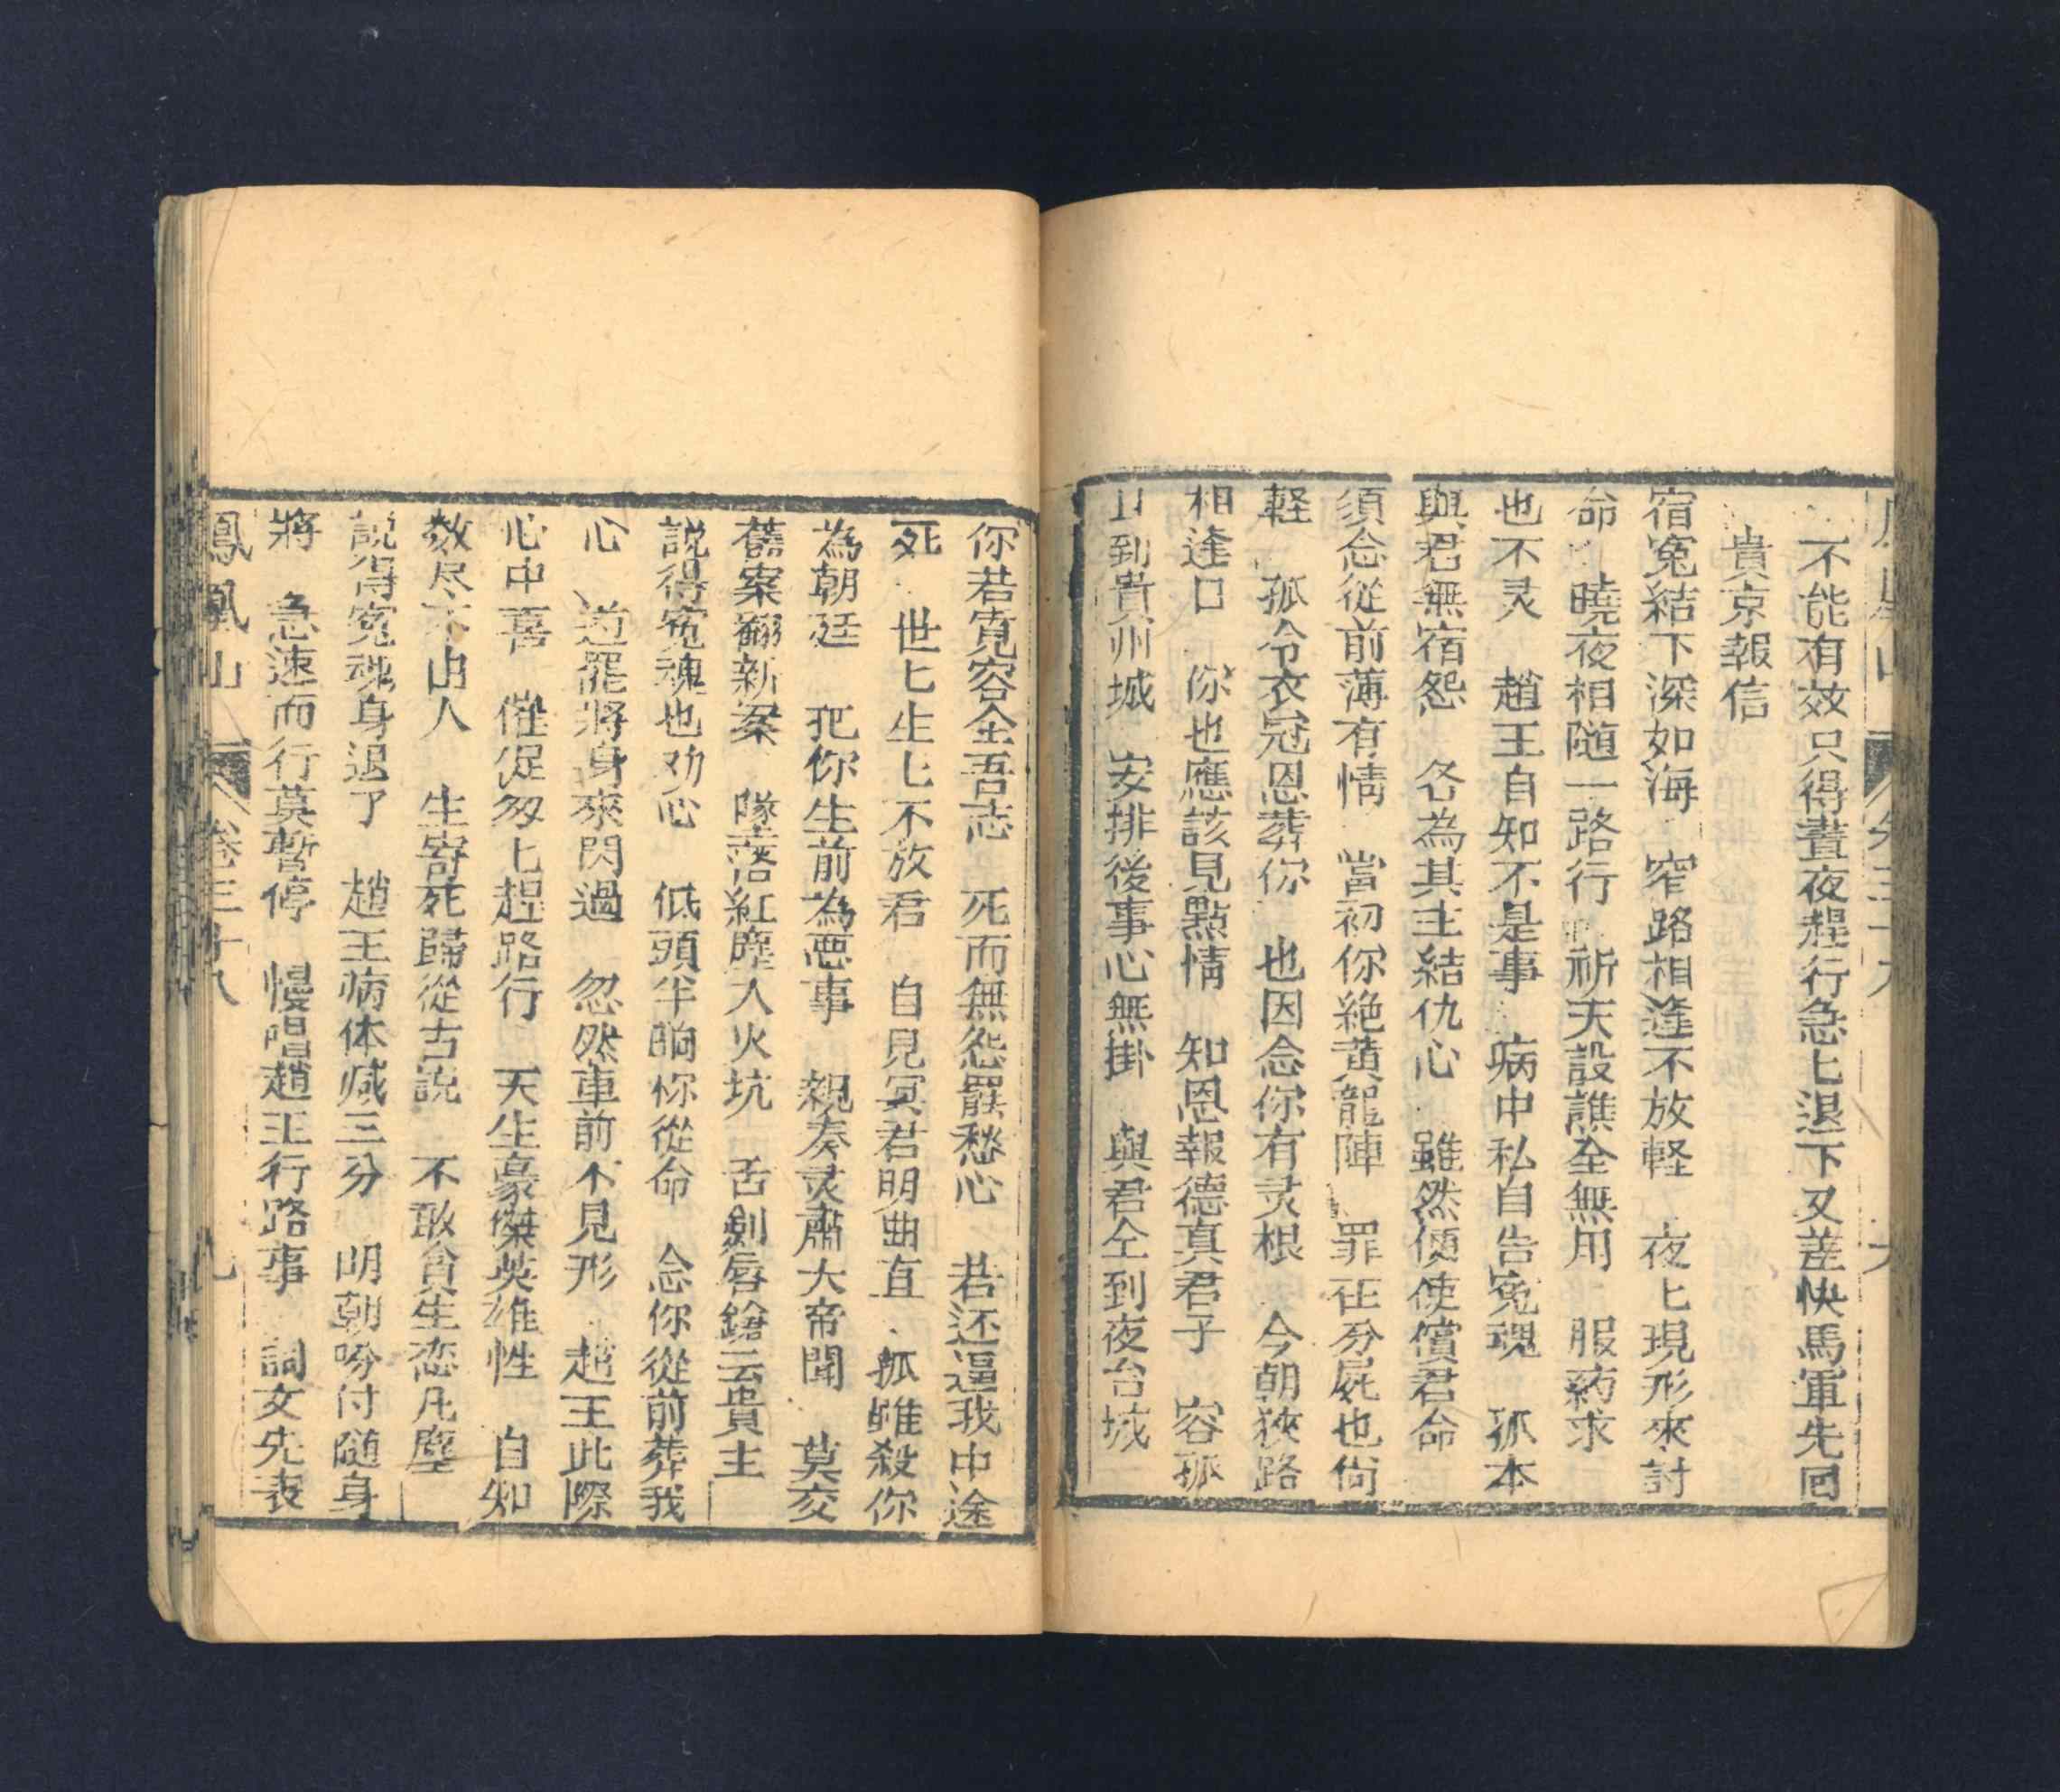 不能有效只得晝夜趕行急匕退下又差快馬軍先回
貴京報信
宿冤結下深如海 窄路相逢不放軽 夜匕現形來討
命 曉夜相随一路行 祈天設譙全無用 服药求
也不灵 趙王自知不是事 病中私自告冤魂 孤本
與君無宿怨 各為其主結仇心 雖然便使償君命
須念從前薄有情 當初你絶黄龍陣 罪在分屍也尙
軽 孤令衣冠恩葬你 也因念你有灵根 今朝狹路
相逢口 你也應該見點情 知恩報德真君子 容孤
到貴州城 安排後事心無掛 與君仝到夜台城
你若寬容全吾志 死而無怨罷愁心 若还逼我中途
死 世匕生匕不放君 自見冥君明曲直 孤雖殺你
為朝廷 把你生前為悪事 親奏灵霄大帝聞 莫交
舊案翻新案 墜落紅塵人火坑 舌劍唇鎗云貴主
説得冤魂也劝心 低頭半晌你從命 念你從前葬我
心 道罷將身來閃過 忽然車前不見形 趙王此際
心中喜 催促匆匕趕路行 天生豪傑英雄性 自知
数尽不由人 生寄死歸從古説 不敢貪生恋凡塵
説得冤魂身退了 趙王病体减三分 明朝吩付随身
將 急速而行莫暫停 慢唱趙王行路事 詞文先表
鳳凰山 卷三十八 九